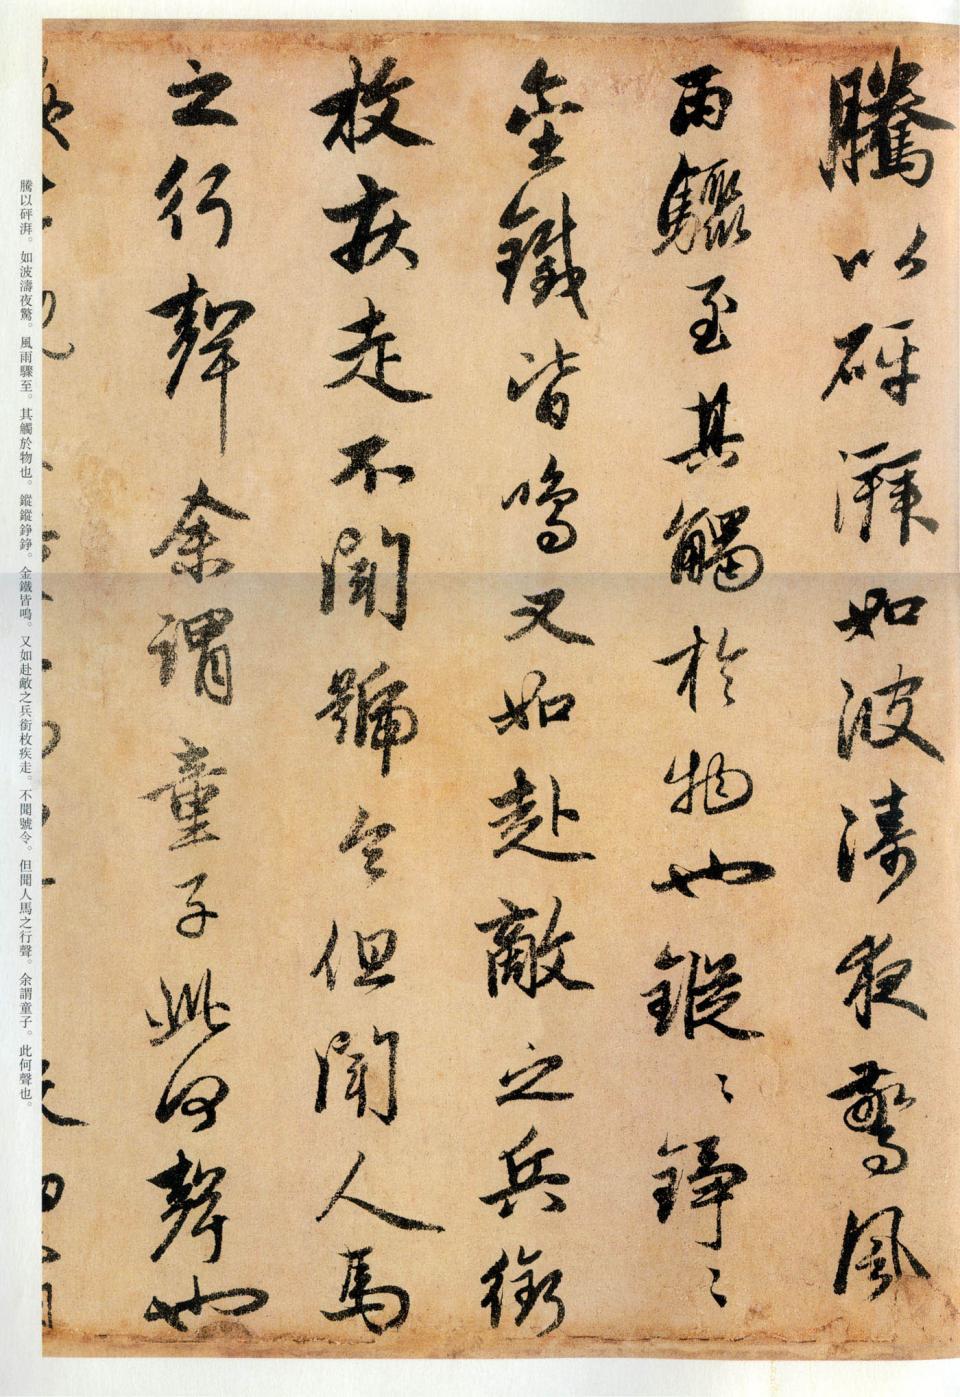 騰以砰湃如波濤夜驚風
雨驟至其觸於物也鏦〻錚〻
金鐵皆鳴又如赴敵之兵銜
枚疾走不聞號令但聞人馬
之行聲余謂童子此何聲也
騰以砰湃。如波濤夜驚。風雨驟至。其觸於物也。鏦鏦錚錚。金鐵皆鳴。又如赴敵之兵銜枚疾走。不聞號令。但聞人馬之行聲。余謂童子。此何聲也。